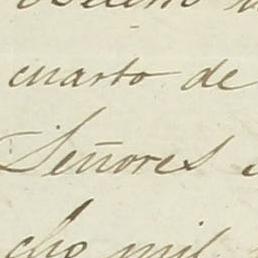 cuarto de
Señores
cho mil